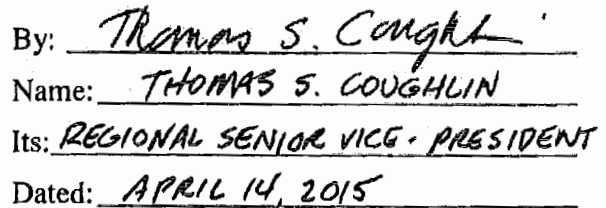 By: Thomas S. Coughlin
Name: THOMAS S. COUGHLIN
Its: REGIONAL SENIOR VICE - PRESIDENT
Dated: APRIL 14, 2015